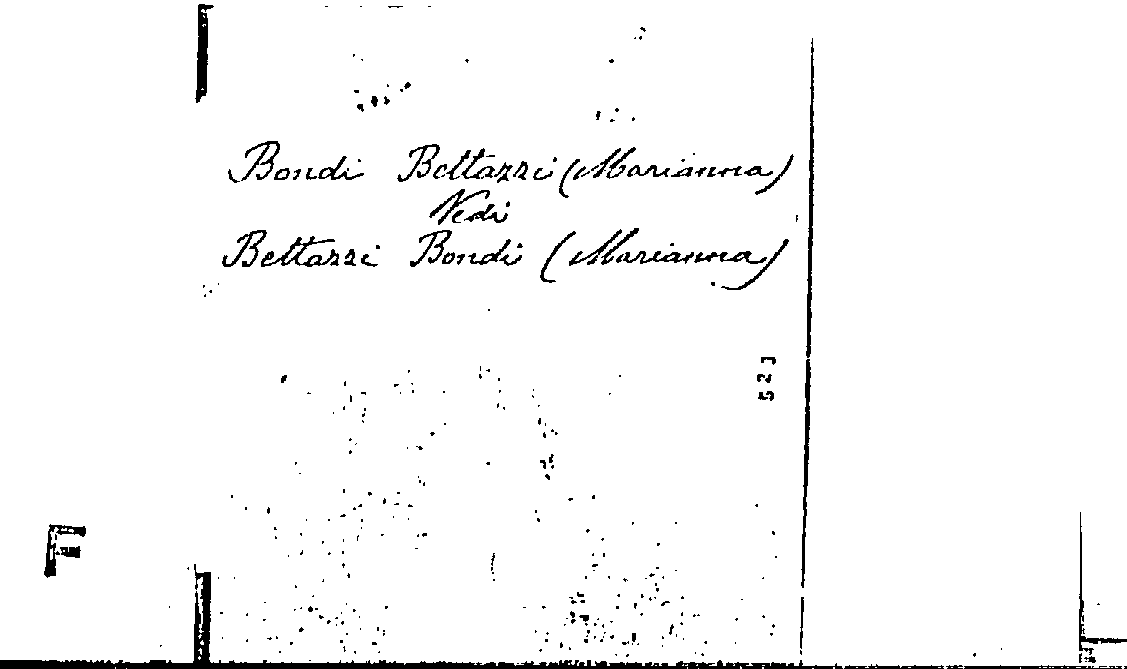 Bondi Bettazzi (Marianna)
Vedi
Bettazzi Bondi (Marianna)
523
F